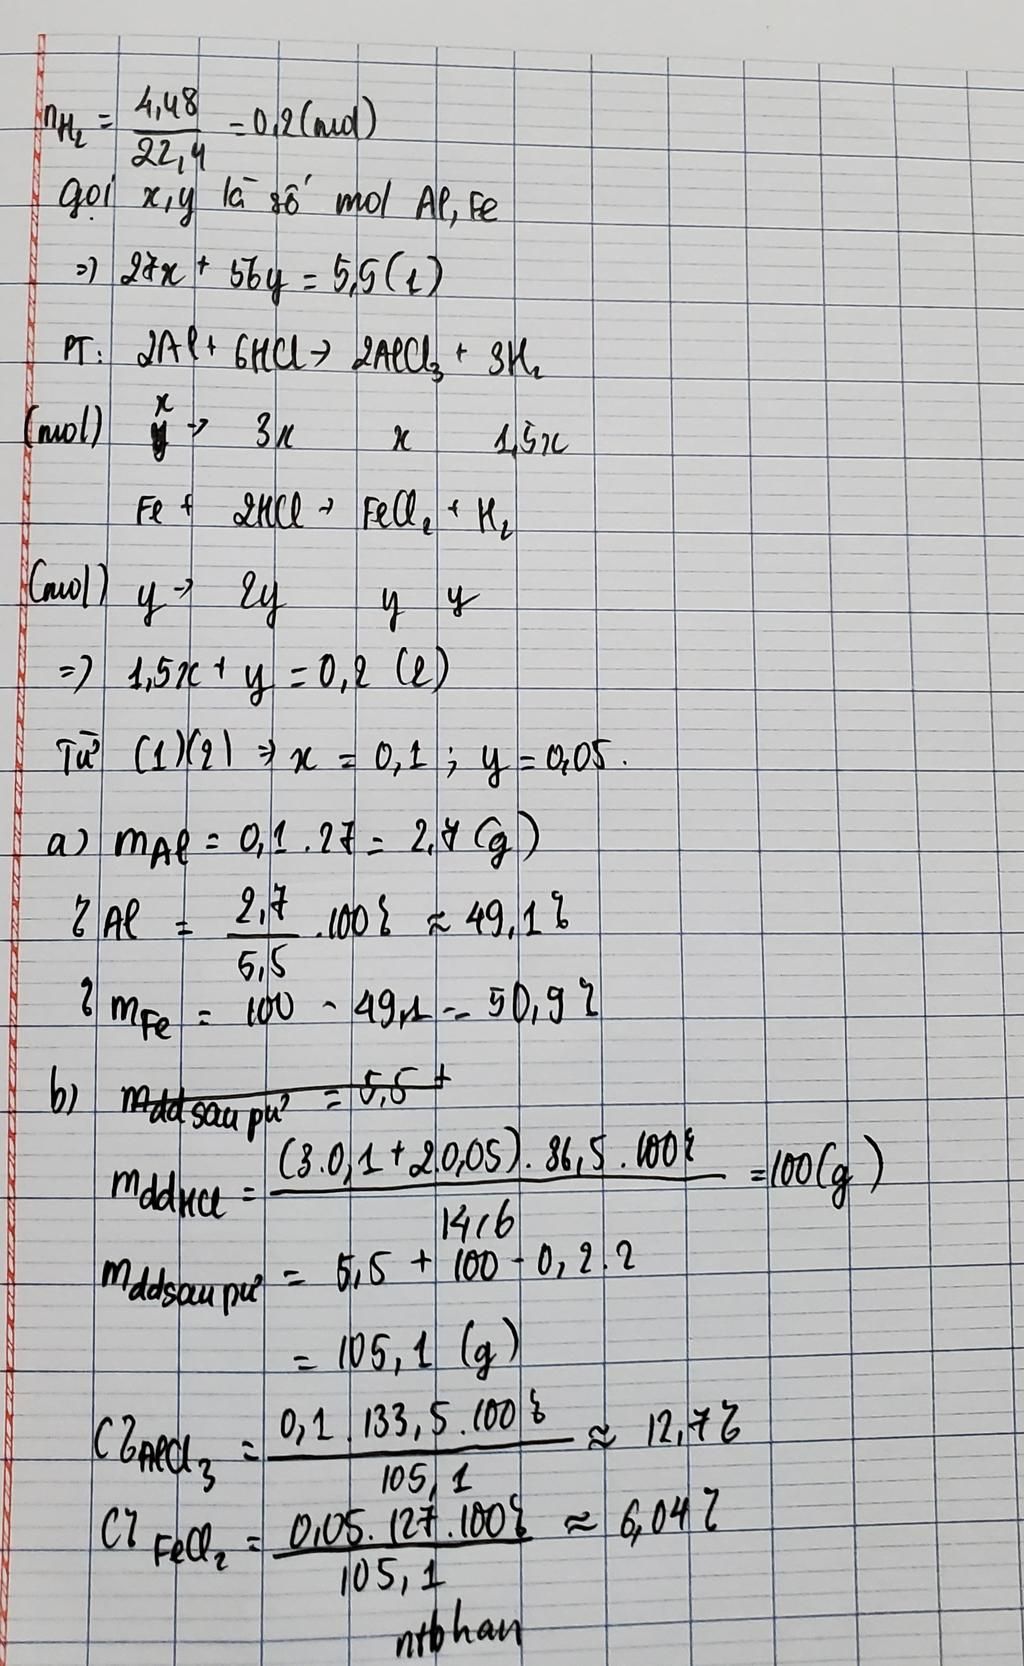 nH₂ = 4,48/22,4 = 0,2 (mol)
Gọi x, y là số mol Al, Fe
=> 27x + 56y = 5,5 (1)
PT: 2Al + 6HCl → 2AlCl₃ + 3H₂
(mol) x → 3x x 1,5x
Fe + 2HCl → FeCl₂ + H₂
(mol) y → 2y y y
=> 1,5x + y = 0,2 (2)
Từ (1)(2) => x = 0,1 ; y = 0,05.
a) mAl = 0,1 . 27 = 2,7 (g)
% Al = 2,7/5,5 . 100% ≈ 49,1%
% mFe = 100 - 49,1 = 50,9%
b) mdd sau pư = 5,5 +
mddHCl = (3.0,1 + 2.0,05) . 36,5 . 100% / 14,6 = 100 (g)
mdd sau pư = 5,5 + 100 - 0,2.2
= 105,1 (g)
C% AlCl₃ = 0,1 . 133,5 . 100% / 105,1 ≈ 12,7%
C% FeCl₂ = 0,05 . 127 . 100% / 105,1 ≈ 6,04%
ntbhan